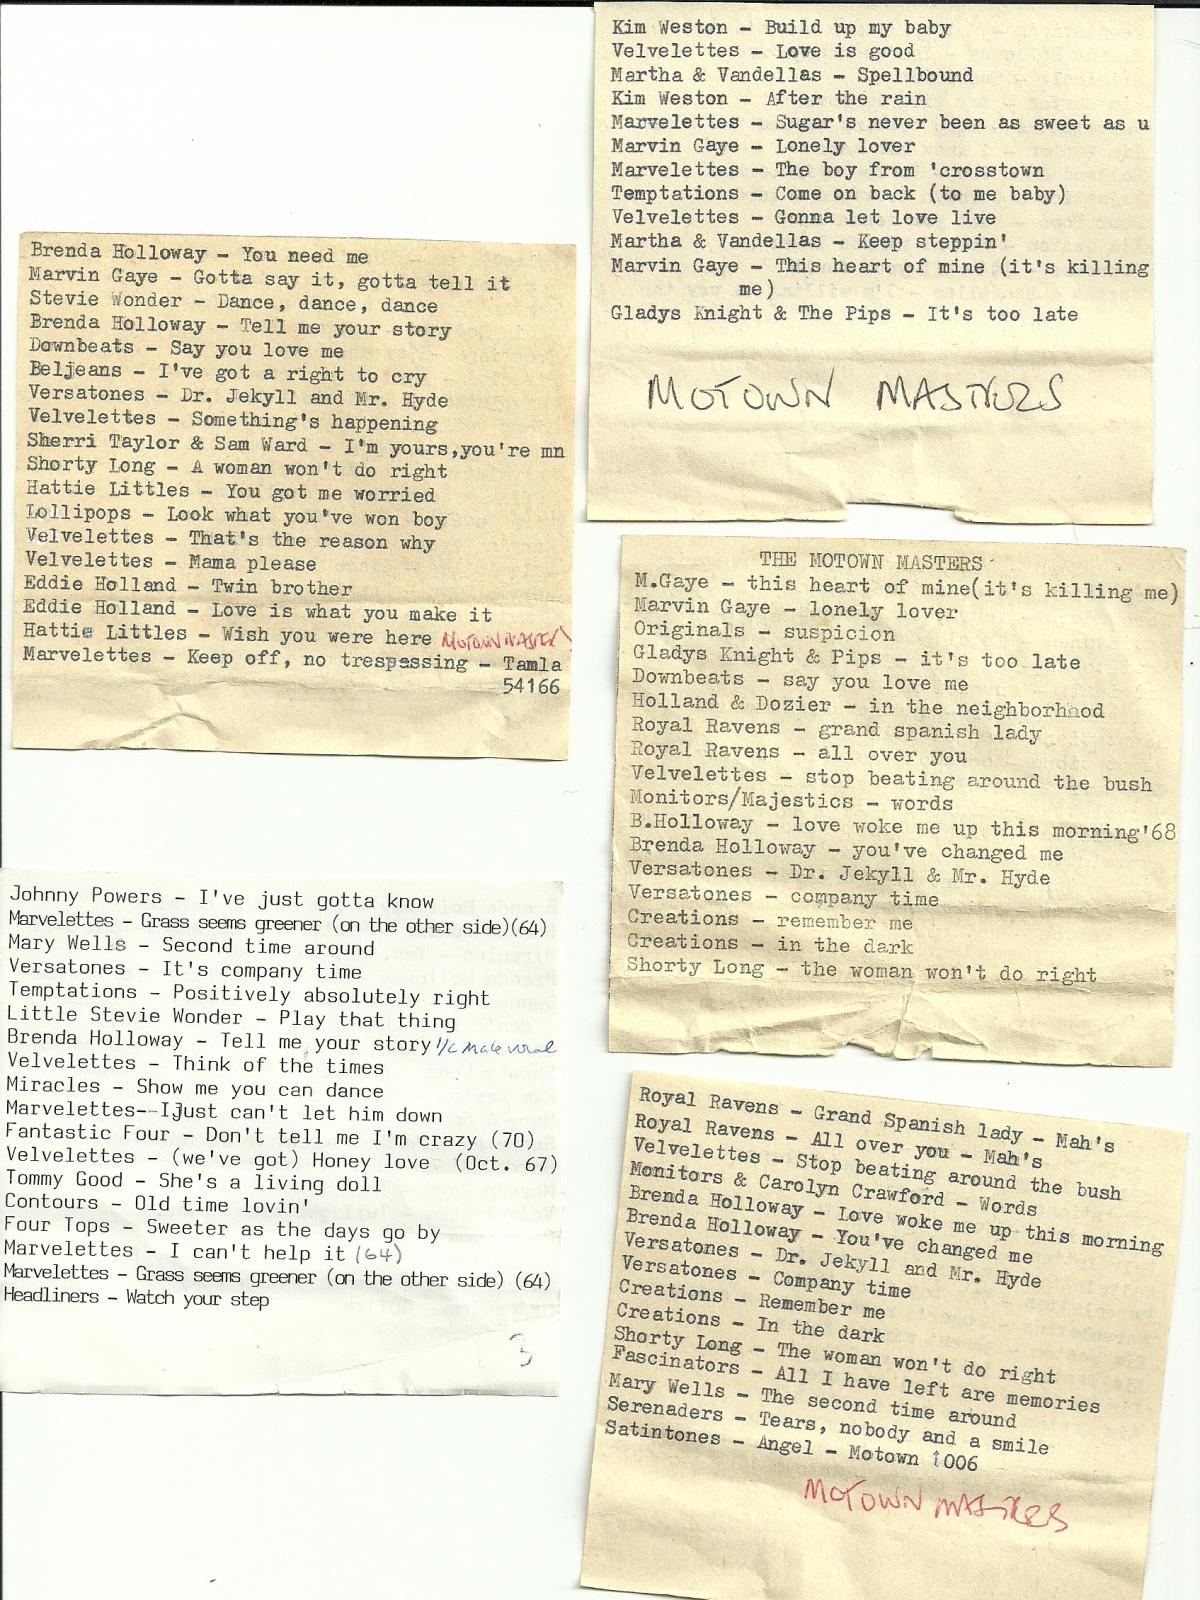 Kim Weston - Build up my baby
Velvelettes - Love is good
Martha & Vandellas - Spellbound
Kim Weston - After the rain
Marvelettes - Sugar's never been as sweet as u
Marvin Gaye - Lonely lover
Marvelettes - The boy from 'crosstown
Temptations - Come on back (to me baby)
Velvelettes - Gonna let love live
Martha & Vandellas - Keep steppin'
Marvin Gaye - This heart of mine (it's killing
me)
Gladys Knight & The Pips - It's too late
MOTOWN MASTERS
Brenda Holloway - You need me
Marvin Gaye - Gotta say it, gotta tell it
Stevie Wonder - Dance, dance, dance
Brenda Holloway - Tell me your story
Downbeats - Say you love me
Beljeans - I've got a right to cry
Versatones - Dr. Jekyll and Mr. Hyde
Velvelettes - Something's happening
Sherri Taylor & Sam Ward - I'm yours,you're mn
Shorty Long - A woman won't do right
Hattie Littles - You got me worried
Lollipops - Look what you've won boy
Velvelettes - That's the reason why
Velvelettes - Mama please
Eddie Holland - Twin brother
Eddie Holland - Love is what you make it
Hattie Littles - Wish you were here MOTOWN MASTERS
Marvelettes - Keep off, no trespassing - Tamla
54166
THE MOTOWN MASTERS
M.Gaye - this heart of mine(it's killing me)
Marvin Gaye - lonely lover
Originals - suspicion
Gladys Knight & Pips - it's too late
Downbeats - say you love me
Holland & Dozier - in the neighborhood
Royal Ravens - grand spanish lady
Royal Ravens - all over you
Velvelettes - stop beating around the bush
Monitors/Majestics - words
B.Holloway - love woke me up this morning'68
Brenda Holloway - you've changed me
Versatones - Dr. Jekyll & Mr. Hyde
Versatones - company time
Creations - remember me
Creations - in the dark
Shorty Long - the woman won't do right
Johnny Powers - I've just gotta know
Marvelettes - Grass seems greener (on the other side)(64)
Mary Wells - Second time around
Versatones - It's company time
Temptations - Positively absolutely right
Little Stevie Wonder - Play that thing
Brenda Holloway - Tell me your story 1/c male vocal
Velvelettes - Think of the times
Miracles - Show me you can dance
Marvelettes--I just can't let him down
Fantastic Four - Don't tell me I'm crazy (70)
Velvelettes - (we've got) Honey love (Oct. 67)
Tommy Good - She's a living doll
Contours - Old time lovin'
Four Tops - Sweeter as the days go by
Marvelettes - I can't help it (64)
Marvelettes - Grass seems greener (on the other side) (64)
Headliners - Watch your step
3
Royal Ravens - Grand Spanish lady - Mah's
Royal Ravens - All over you - Mah's
Velvelettes - Stop beating around the bush
Monitors & Carolyn Crawford - Words
Brenda Holloway - Love woke me up this morning
Brenda Holloway - You've changed me
Versatones - Dr. Jekyll and Mr. Hyde
Versatones - Company time
Creations - Remember me
Creations - In the dark
Shorty Long - The woman won't do right
Fascinators - All I have left are memories
Mary Wells - The second time around
Serenaders - Tears, nobody and a smile
Satintones - Angel - Motown 1006
MOTOWN MASTERS